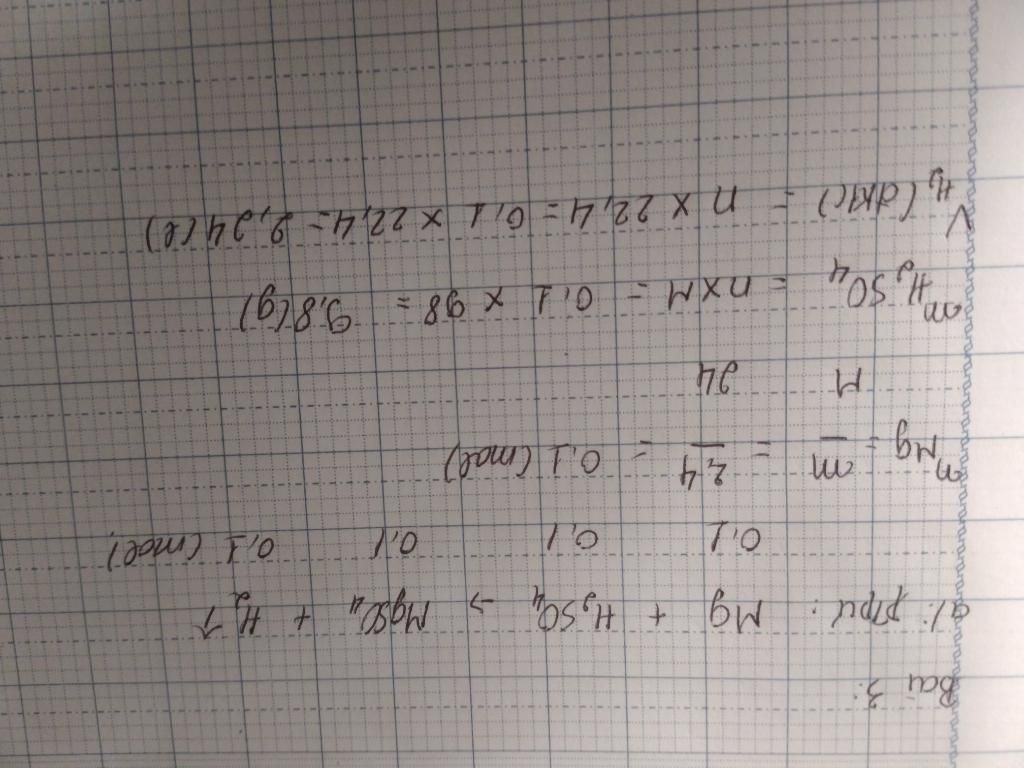 Bài 3:
a). ptpư: Mg + H₂SO₄ → MgSO₄ + H₂↑
0,1 0,1 0,1 0,1 (mol)
nMg = m/M = 2,4/24 = 0,1 (mol)
mH₂SO₄ = n x M = 0,1 x 98 = 9,8 (g)
VH₂(đktc) = n x 22,4 = 0,1 x 22,4 = 2,24 (l)